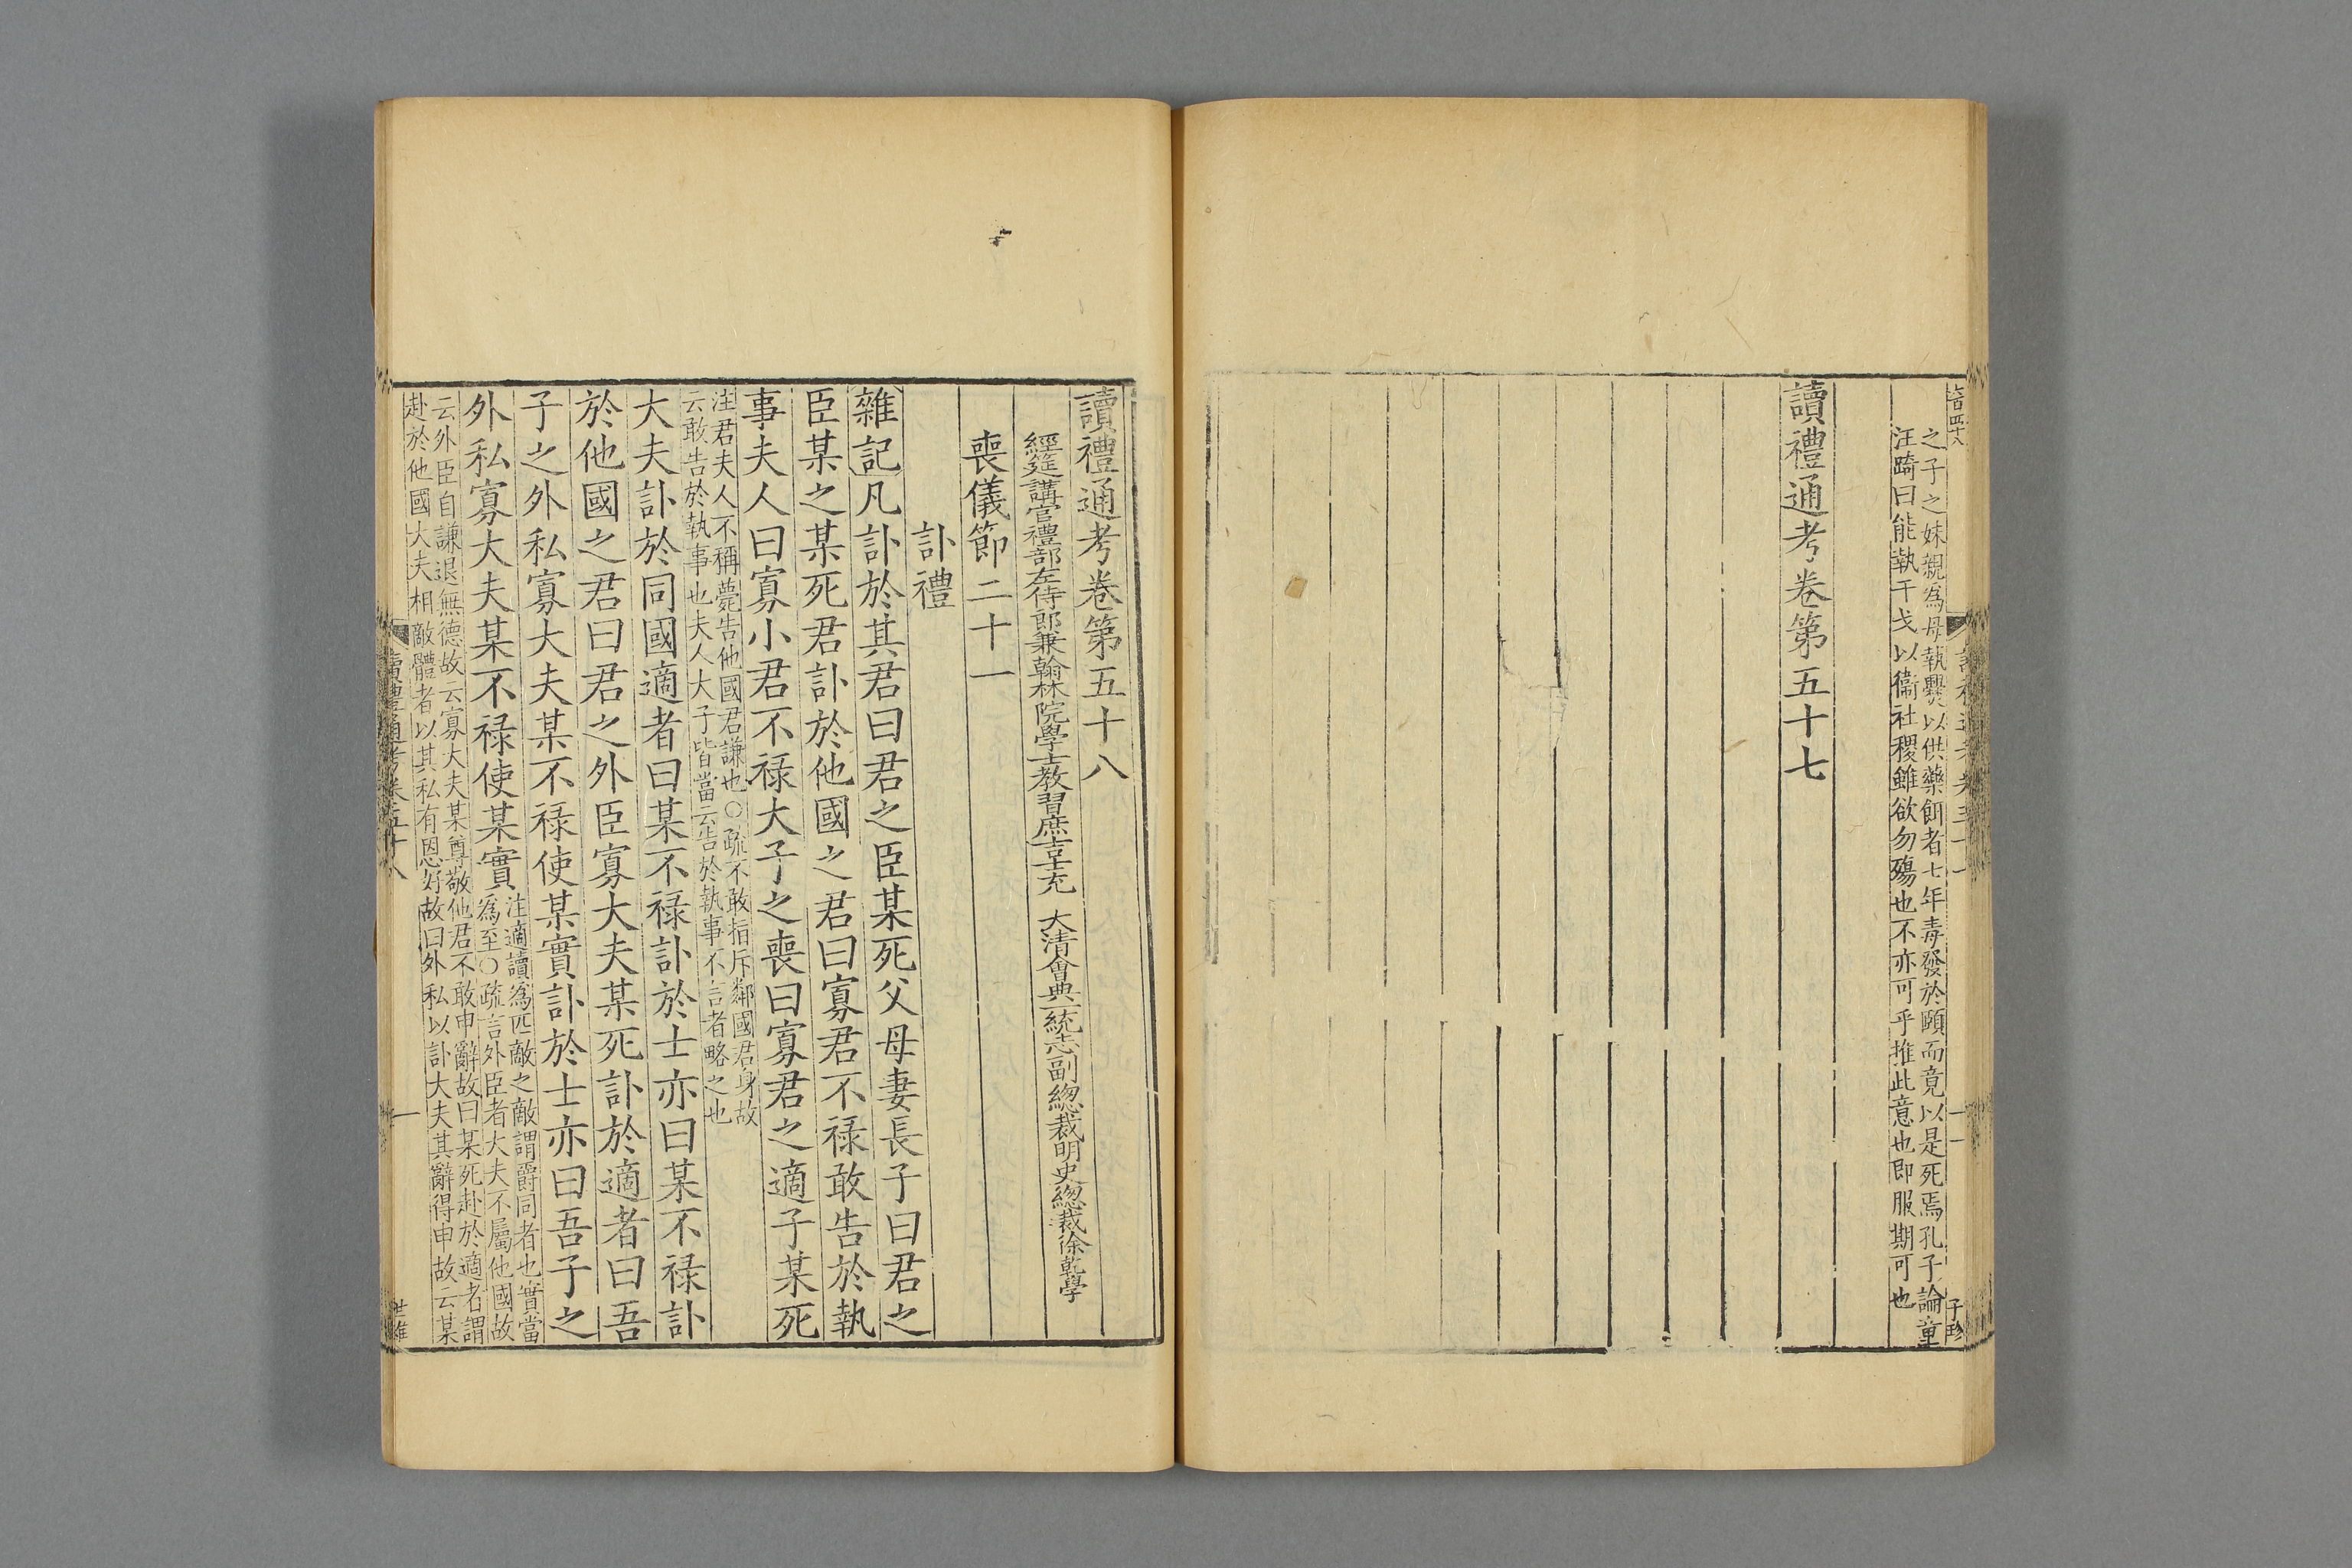 之子之妹親為母執爨以供藥餌者七年毒發於頤而竟以是死焉孔子論童
汪踦曰能執干戈以衞社稷雖欲勿殤也不亦可乎推此意也即服期可也
讀禮通考卷第五十七
子珍
讀禮通考卷第五十八
經筵講官禮部左侍郎兼翰林院學士教習庶吉士充 大清會典一統志副總裁明史總裁徐乾學
喪儀節二十一
訃禮
雜記凡訃於其君曰君之臣某死父母妻長子曰君之
臣某之某死君訃於他國之君曰寡君不祿敢告於執
事夫人曰寡小君不祿大子之喪曰寡君之適子某死
注君夫人不稱薨告他國君謙也○疏不敢指斥鄰國君身故
云敢告於執事也夫人大子皆當云告於執事不言者略之也
大夫訃於同國適者曰某不祿訃於士亦曰某不祿訃
於他國之君曰君之外臣寡大夫某死訃於適者曰吾
子之外私寡大夫某不祿使某實訃於士亦曰吾子之
外私寡大夫某不祿使某實
注適讀為匹敵之敵謂爵同者也實當
為至○疏言外臣者大夫不屬他國故
云外臣自謙退無德故云寡大夫某尊敬他君不敢申辭故曰某死赴於適者謂
赴於他國大夫相敵體者以其私有恩好故曰外私以訃大夫其辭得申故云某
讀禮通考卷五十八
一